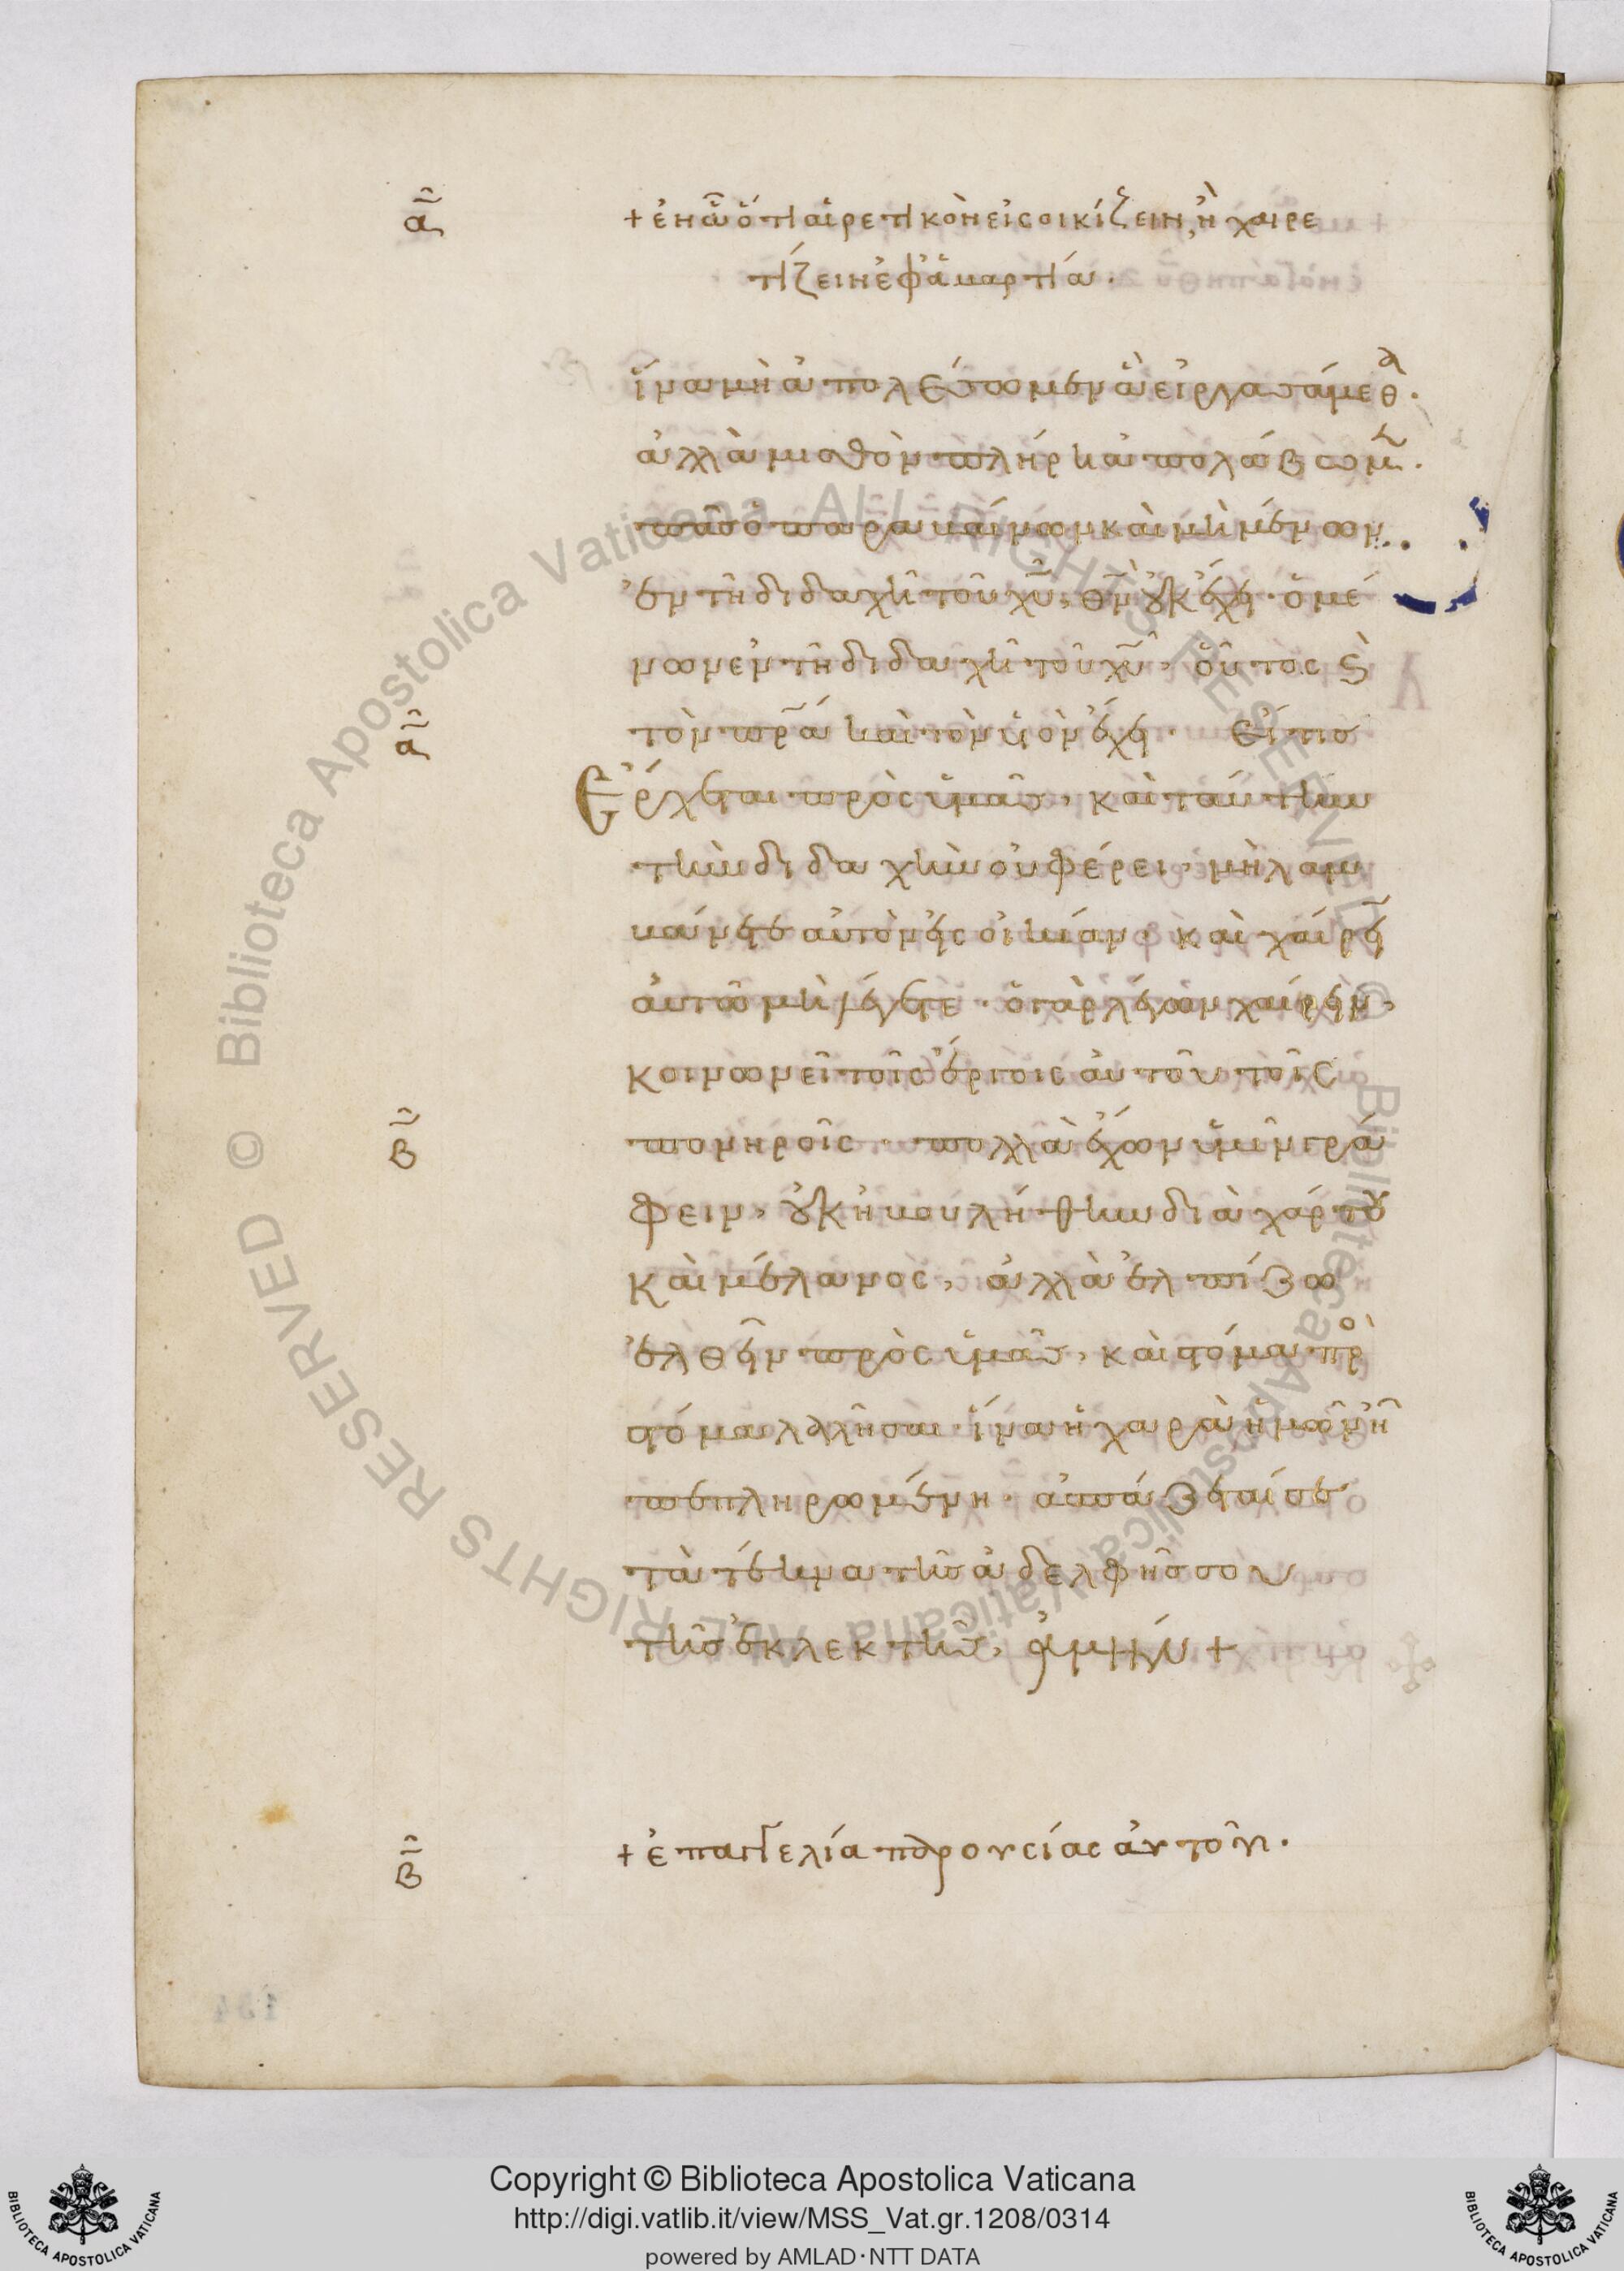 α
+ ἐν ᾧ ὅτι αἱρετικὸν εἰσοικίζειν, ἢ χαιρε
τίζειν ἐφ' ἁμαρτία.
ἵνα μὴ ἀπολέσωμεν ἃ εἰργασάμεθα.
ἀλλὰ μισθὸν πλήρη ἀπολάβωμεν.
πᾶς ὁ παραβαίνων καὶ μὴ μένων
ἐν τῆ διδαχῆ τοῦ χυ, θν οὐκ ἔχει. ὁ μέ
νων ἐν τῆ διδαχῆ τοῦ χυ, οὗτος καὶ
α
τὸν πρα καὶ τὸν υἱὸν ἔχει. Εἴ τις
Ἔρχεται πρὸς ὑμᾶς, καὶ ταύτην
τὴν διδαχὴν οὐ φέρει, μὴ λαμ
βάνετε αὐτὸν εἰς οἰκίαν. καὶ χαίρειν
αὐτῶ μὴ λέγετε. ὁ γὰρ λέγων χαίρειν,
κοινωνεῖ τοῖς ἔργοις αὐτοῦ τοῖς
β
πονηροῖς. πολλὰ ἔχων ὑμῖν γρά
φειν, οὐκ ἠβουλήθην διὰ χάρτου
καὶ μέλανος, ἀλλὰ ἐλπίζω
ἐλθεῖν πρὸς ὑμᾶς, καὶ στόμα πρὸ
στόμα λαλῆσαι ἵνα ἡ χαρὰ ἡμῶν ἦ
πεπληρωμένη. ἀσπάζεταί σε
τὰ τέκνα τῆς ἀδελφῆς σου
τῆς ἐκλεκτῆς, ἀμήν +
β
+ ἐπαγγελία παρουσίας αὐτοῦ.
Copyright © Biblioteca Apostolica Vaticana
http://digi.vatlib.it/view/MSS_Vat.gr.1208/0314
powered by AMLAD·NTT DATA
BIBLIOTECA APOSTOLICA VATICANA
BIBLIOTECA APOSTOLICA VATICANA
Biblioteca Apostolica Vaticana ALL RIGHTS RESERVED ©
Biblioteca Apostolica Vaticana ALL RIGHTS RESERVED ©